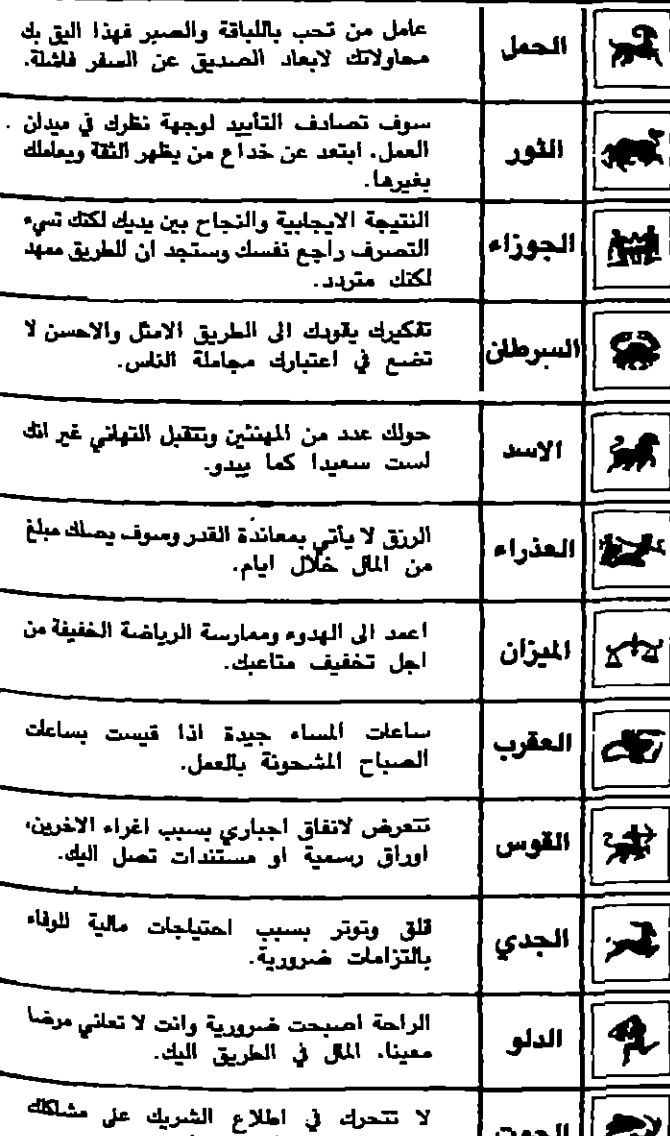 الحمل
عامل من تحب باللباقة والصبر فهذا اليق بك
محاولاتك لابعاد الصديق عن السفر فاشلة.
الثور
سوف تصادف التأييد لوجهة نظرك في ميدان
العمل. ابتعد عن خداع من يظهر الثقة ويعاملك
بغيرها.
الجوزاء
النتيجة الايجابية والنجاح بين يديك لكنك تسيء
التصرف راجع نفسك وستجد ان الطريق ممهد
لكنك متردد.
السرطان
تفكيرك يقودك الى الطريق الامثل والاحسن لا
تضع في اعتبارك مجاملة الناس.
الاسد
حولك عدد من المهنئين وتتقبل التهاني غير انك
لست سعيدا كما يبدو.
العذراء
الرزق لا يأتي بمعاندة القدر وسوف يصلك مبلغ
من المال خلال ايام.
الميزان
اعمد الى الهدوء وممارسة الرياضة الخفيفة من
اجل تخفيف متاعبك.
العقرب
ساعات المساء جيدة اذا قيست بساعات
الصباح المشحونة بالعمل.
القوس
تتعرض لاتفاق اجباري بسبب اغراء الاخرين،
اوراق رسمية او مستندات تصل اليك.
الجدي
قلق وتوتر بسبب احتياجات مالية للوفاء
بالتزامات ضرورية.
الدلو
الراحة اصبحت ضرورية وانت لا تعاني مرضا
معينا. المال في الطريق اليك.
الحوت
لا تتحرك في اطلاع الشريك على مشاكلك